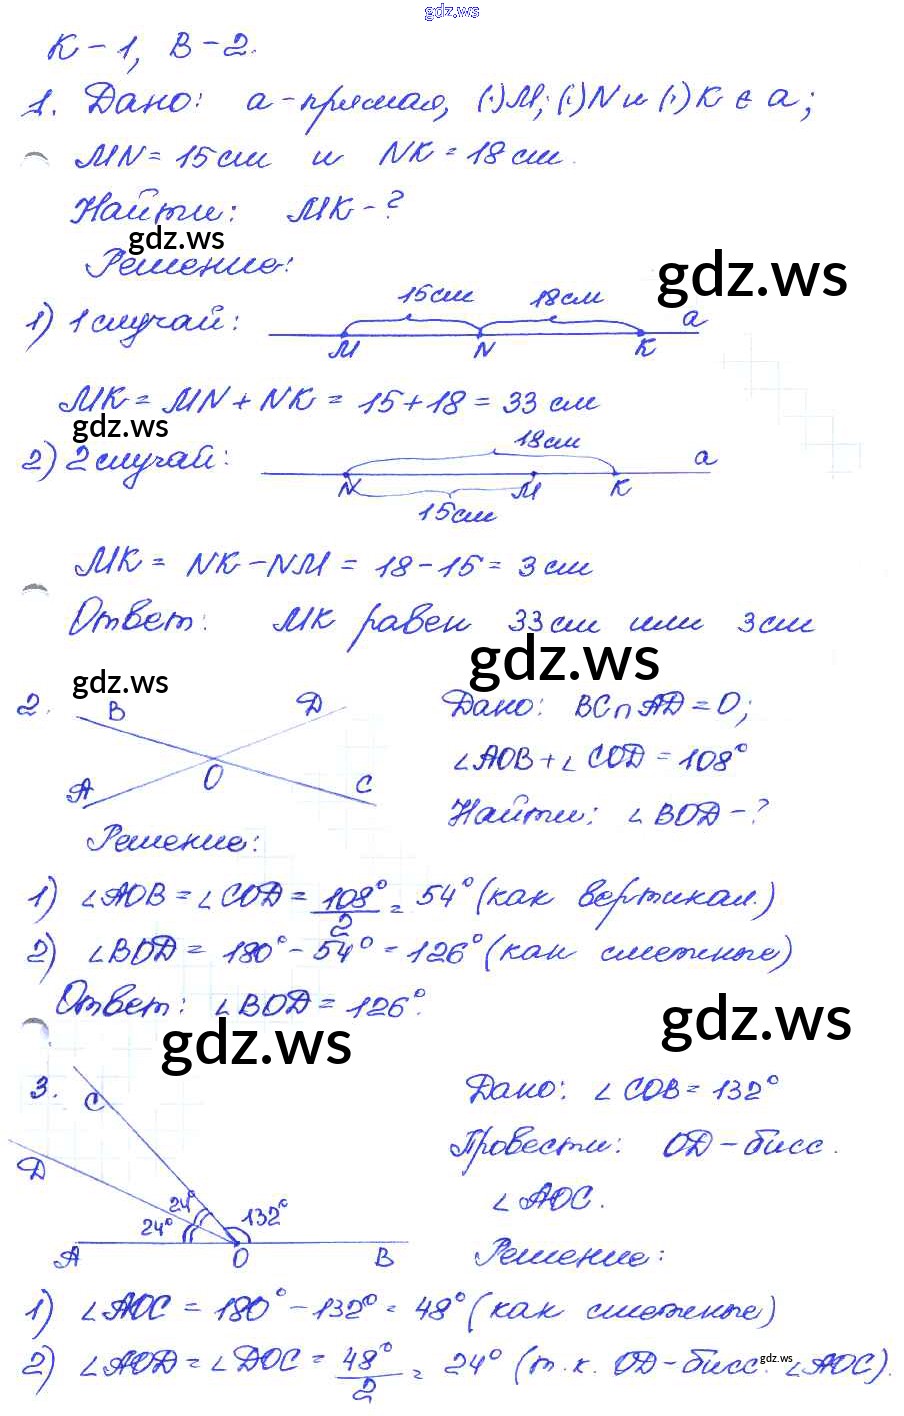 gdz.ws
К-1, В-2.
1. Дано: a-прямая, (·)M; (·)N и (·)K ∈ a;
MN = 15 см и NK = 18 см.
Найти: MK-?
gdz.ws
Решение:
gdz.ws
1) 1 случай:
15 см 18 см a
M N K
MK = MN + NK = 15 + 18 = 33 см
gdz.ws
2) 2 случай:
18 см a
N M K
15 см
MK = NK - NM = 18 - 15 = 3 см
Ответ: MK равен 33 см или 3 см
gdz.ws
gdz.ws
2. B D
A O C
Дано: BC∩AD = O;
∠AOB + ∠COD = 108°
Найти: ∠BOD-?
Решение:
1) ∠AOB = ∠COD = 108°/2 = 54° (как вертикал.)
2) ∠BOD = 180° - 54° = 126° (как смежные)
Ответ: ∠BOD = 126°.
gdz.ws
gdz.ws
3. C
D
24° 24° 132°
A O B
Дано: ∠COB = 132°
Провести: OD-бисс.
∠AOC.
Решение:
1) ∠AOC = 180° - 132° = 48° (как смежные)
2) ∠AOD = ∠DOC = 48°/2 = 24° (т.к. OD-бисс. ∠AOC).
gdz.ws